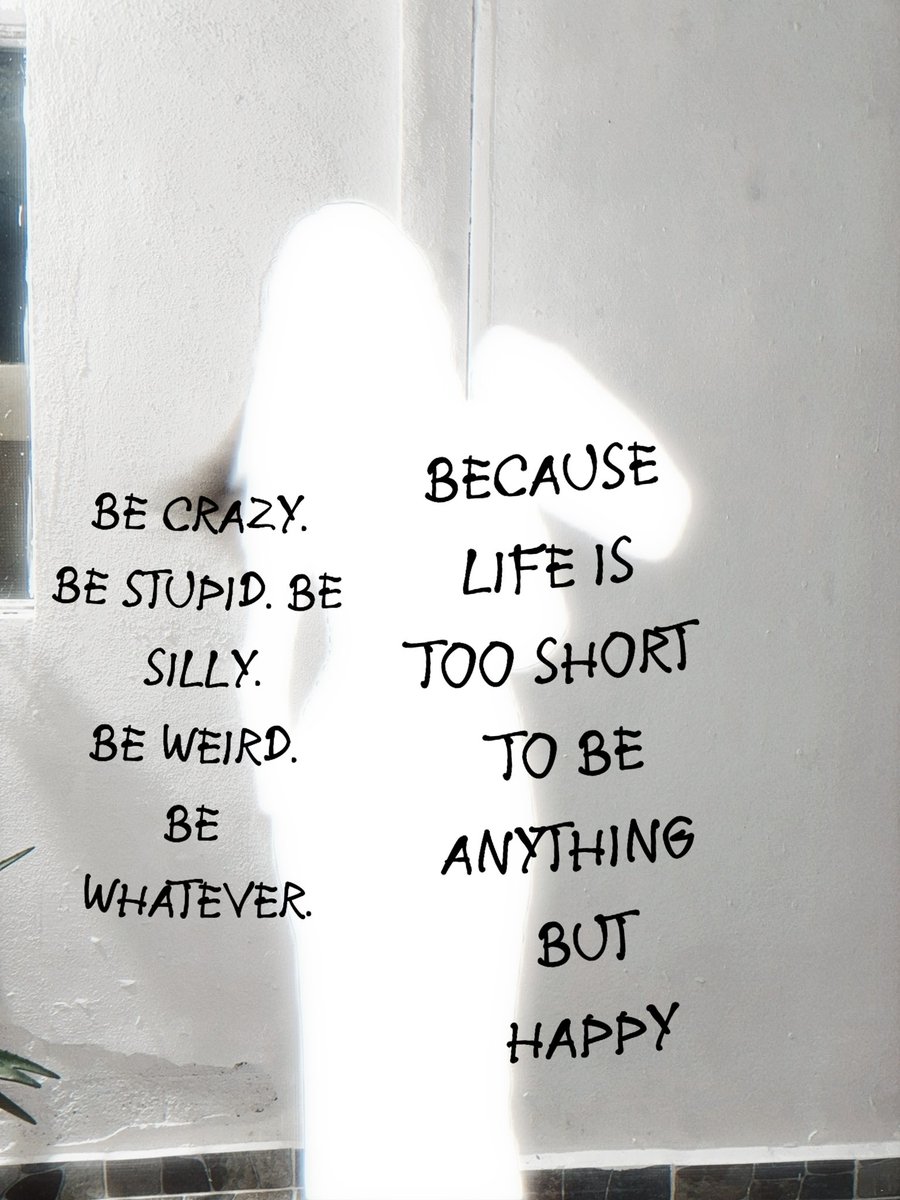 BE CRAZY.
BE STUPID. BE
SILLY.
BE WEIRD.
BE
WHATEVER.
BECAUSE
LIFE IS
TOO SHORT
TO BE
ANYTHING
BUT
HAPPY